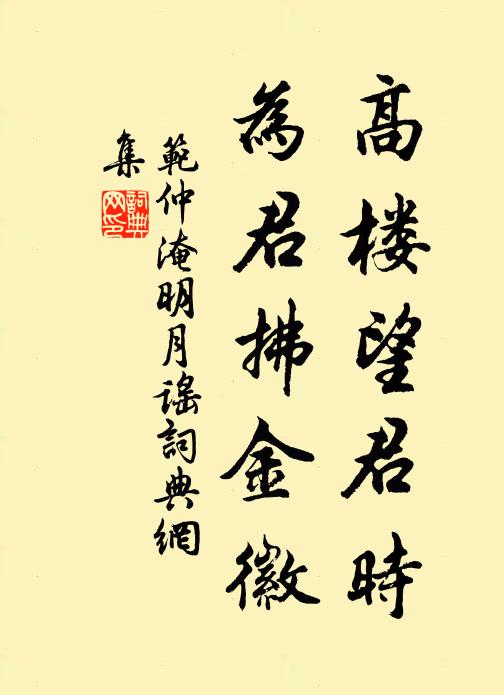 高楼望君時
為君拂金徽
範仲淹明月謠詞典網
集
詞典
网印